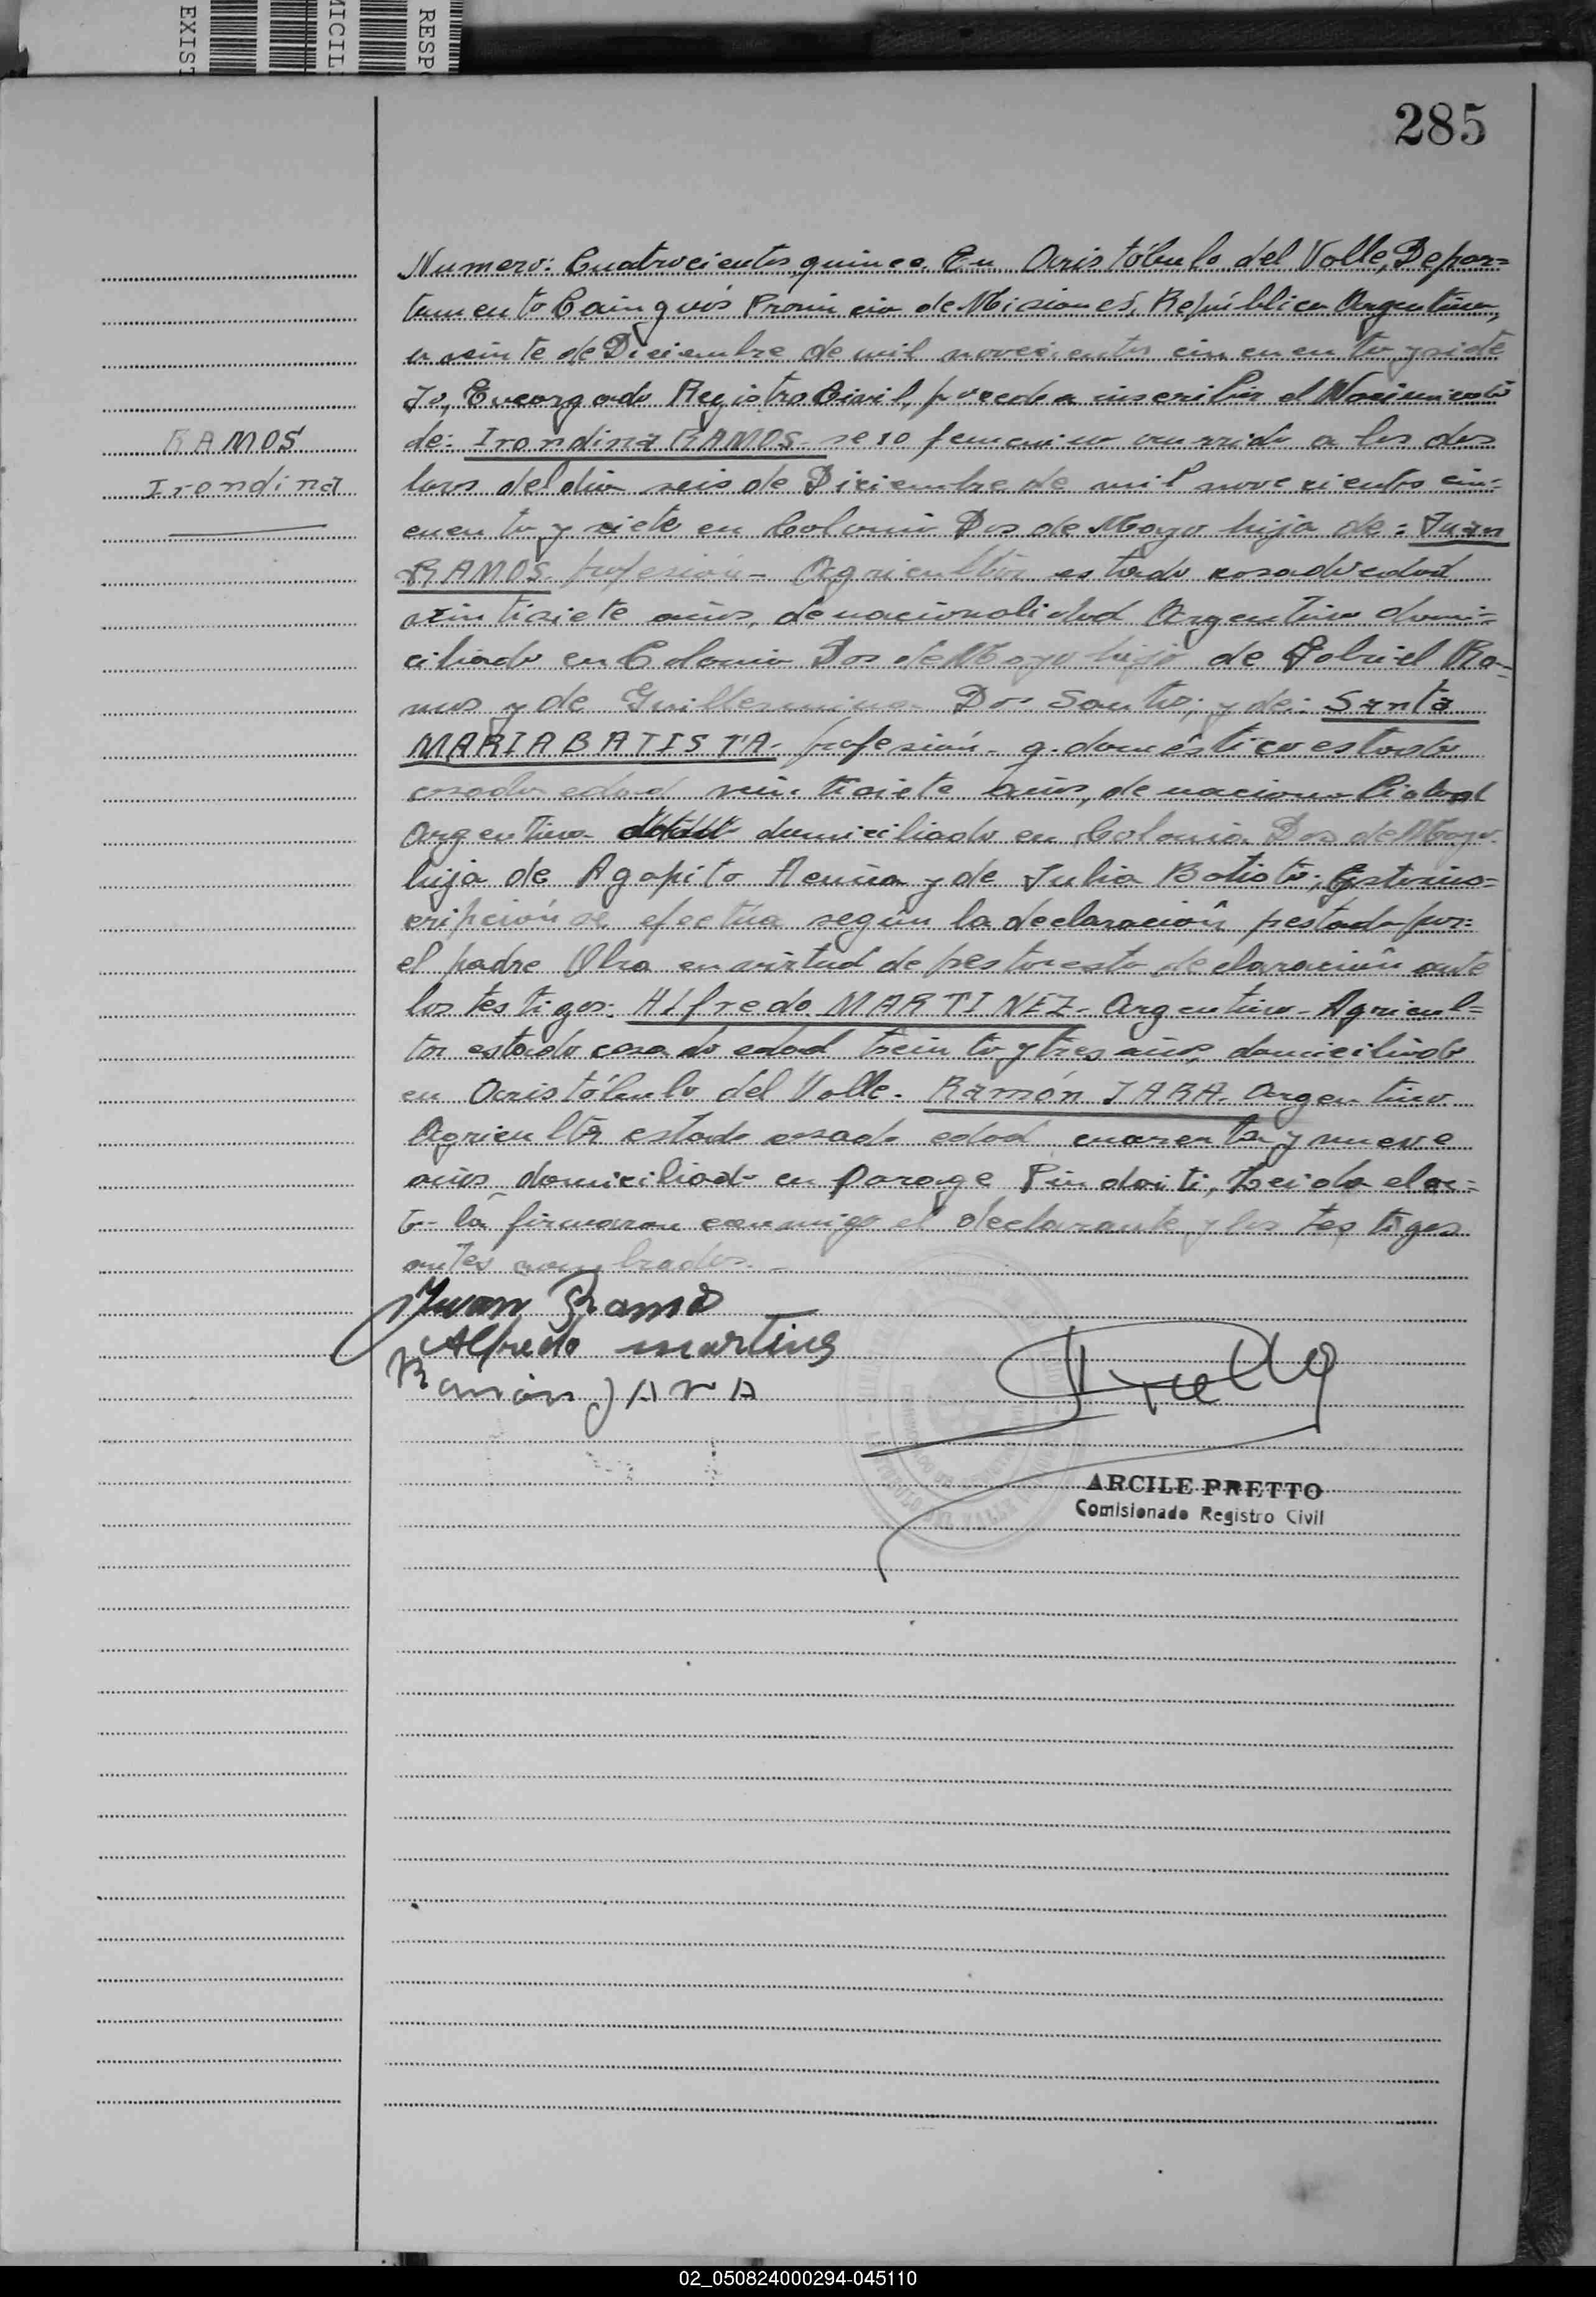 EXIST
MICILI
RESP
285
Numero: Cuatrocientos quince. En Aristóbulo del Valle, Depar=
tamento Cainguás Provincia de Misiones, República Argentina,
a veinte de Diciembre de mil novecientos cincuenta y siete
Yo, Encargado Registro Civil, procedo a inscribir el Nacimiento
RAMOS
de: Irondina RAMOS - sexo femenino ocurrido a las dos
Irondina
horas del dia seis de Diciembre de mil novecientos cin=
cuenta y siete en Colonia Dos de Mayo hija de: Juan
RAMOS. profesión - Agricultor estado casado edad
veintisiete años, de nacionalidad Argentino domi=
ciliado en Colonia Dos de Mayo hijo de Gabriel Ra-
mos y de Guillermina Dos Santos; y de: Santa
MARIA BATISTA - profesión - q. doméstico estado
casada edad veintisiete años, de nacionalidad
Argentina domiciliado en Colonia Dos de Mayo
hija de Agapito y de Julia Batista; Esta ins=
cripción se efectúa según la declaración prestada por:
el padre Obra en virtud de presta esta declaración ante
los testigos: Alfredo MARTINEZ - Argentino - Agricul=
tor estado casado edad treinta y tres años, domiciliado
en Aristóbulo del Valle. Ramón JARA. Argentino
Agricultor estado casado edad cuarenta y nueve
años domiciliado en Parage Pindaiti, Leida el ac=
ta la firmaron conmigo el declarante y los testigos
antes nombrados. -
Juan Ramos
Alfredo martines
Ramón JARA
ARCILE PRETTO
Comisionado Registro Civil
02_050824000294-045110